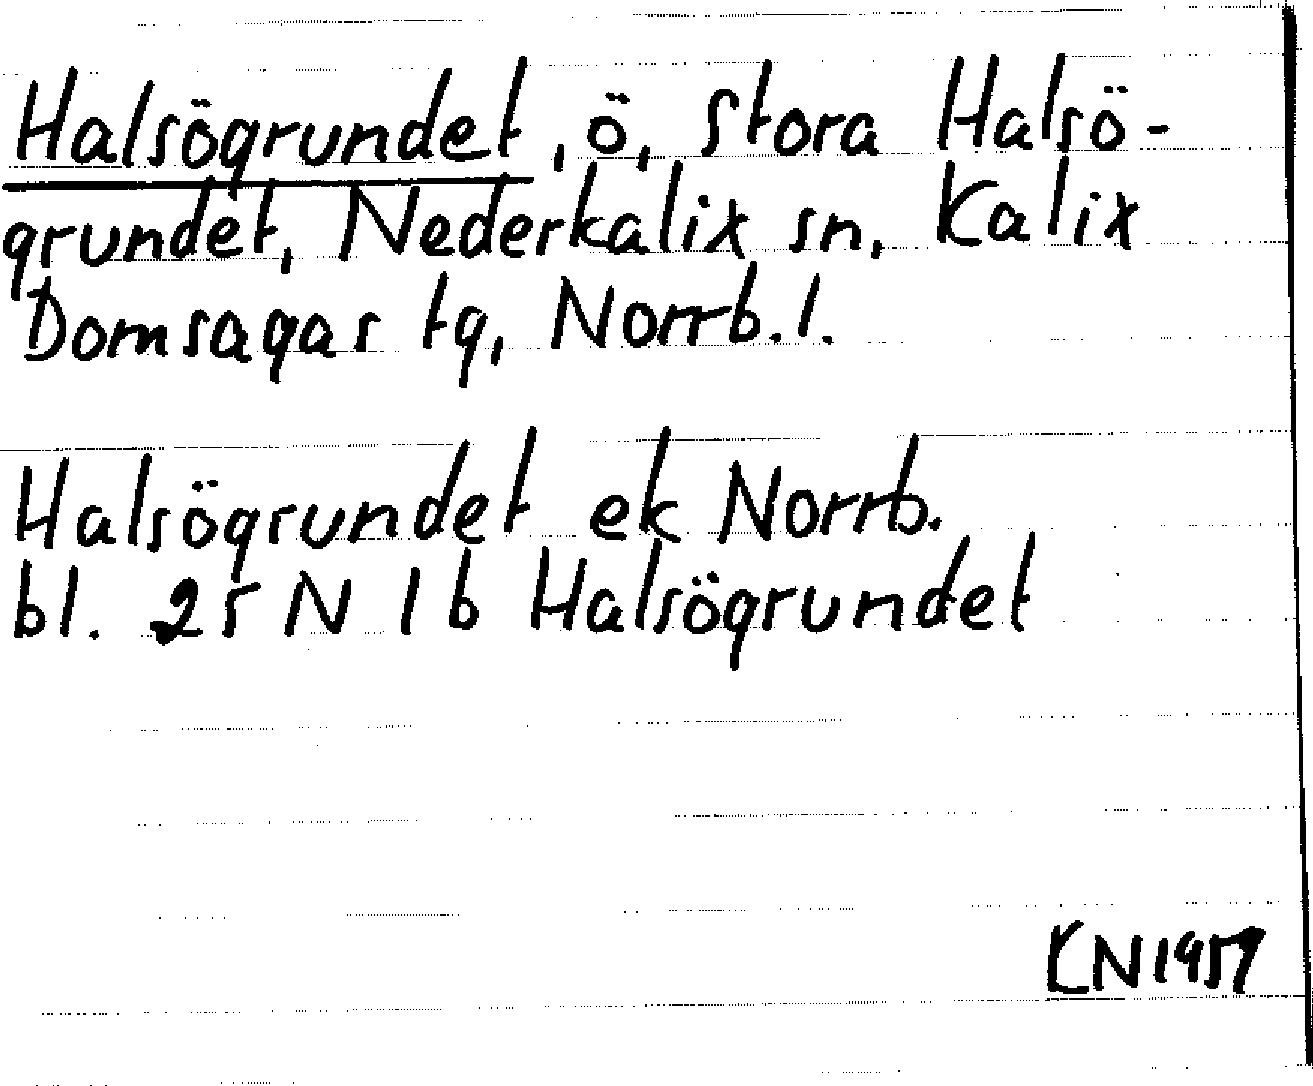 Halsögrundet, ö, Stora Halsö-
grundet, Nederkalix sn, Kalix
Domsagas tg, Norrb. l.
Halsögrundet ek Norrb.
bl. 25 N 1 b Halsögrundet
KN 1957